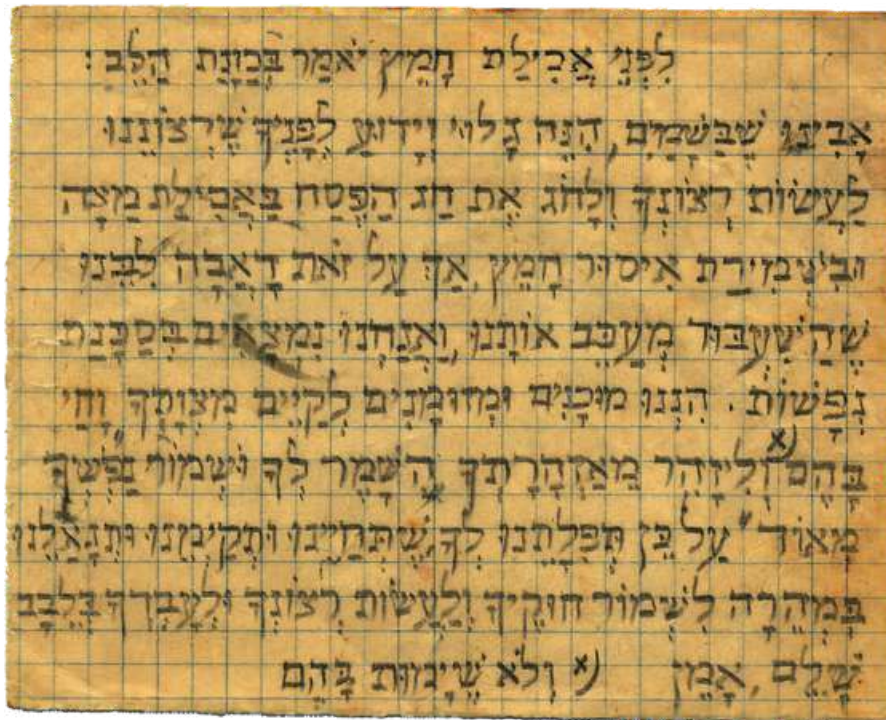 לִפְנֵי אֲכִילַת חָמֵץ יֹאמַר בְּכַוָּנַת הַלֵּב :
אָבִינוּ שֶׁבַּשָּׁמַיִם, הִנֵּה גָּלוּי וְיָדוּעַ לְפָנֶיךָ שֶׁרְצוֹנֵנוּ
לַעֲשׂוֹת רְצוֹנְךָ וְלָחֹג אֶת חַג הַפֶּסַח בַּאֲכִילַת מַצָּה
וּבִשְׁמִירַת אִיסוּר חָמֵץ, אַךְ עַל זֹאת דָּאֲבָה לִבֵּנוּ
שֶׁהַשִּׁעְבּוּד מְעַכֵּב אוֹתָנוּ, וַאֲנַחְנוּ נִמְצָאִים בְּסַכָּנַת
נְפָשׁוֹת. הִנְנוּ מוּכָנִים וּמְזוּמָּנִים לְקַיֵּים מִצְוָתְךָ "וָחַי
בָּהֶם" x) וְלִיזָּהֵר מֵאַזְהָרָתְךָ "הִשָּׁמֶר לְךָ וּשְׁמוֹר נַפְשְׁךָ
מְאוֹד" עַל כֵּן תְּפִלָּתֵנוּ לְךָ שֶׁתְּחַיֵּינוּ וּתְקַיְּמֵנוּ וְתִגְאָלֵנוּ
בִּמְהֵרָה לִשְׁמוֹר חוּקֶּיךָ וְלַעֲשׂוֹת רְצוֹנְךָ וּלְעָבְדְּךָ בְּלֵבָב
שָׁלֵם, אָמֵן x) וְלֹא שֶׁיָּמוּת בָּהֶם